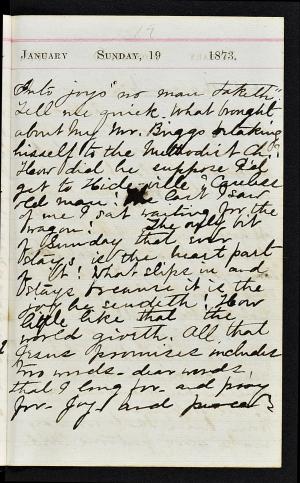 17
January Sunday, 19 1873.
Into joys "no man taketh"
Tell me quick. What brought
about Mr. Briggs taking
hisself to the Methodist Ch?
How did he suppose I'd
get to Hideville? Careless
old man! The last I saw
of me I sat waiting for the
wagon! The only bit
of Sunday that ever
stays is the heart part
of it! What slips in and
stays because it is the
joy he sendeth! How
little like that the
world giveth. All that
Jesus promises includes
two words - dear words,
that I long for - and pray
for - Joy! and peace?